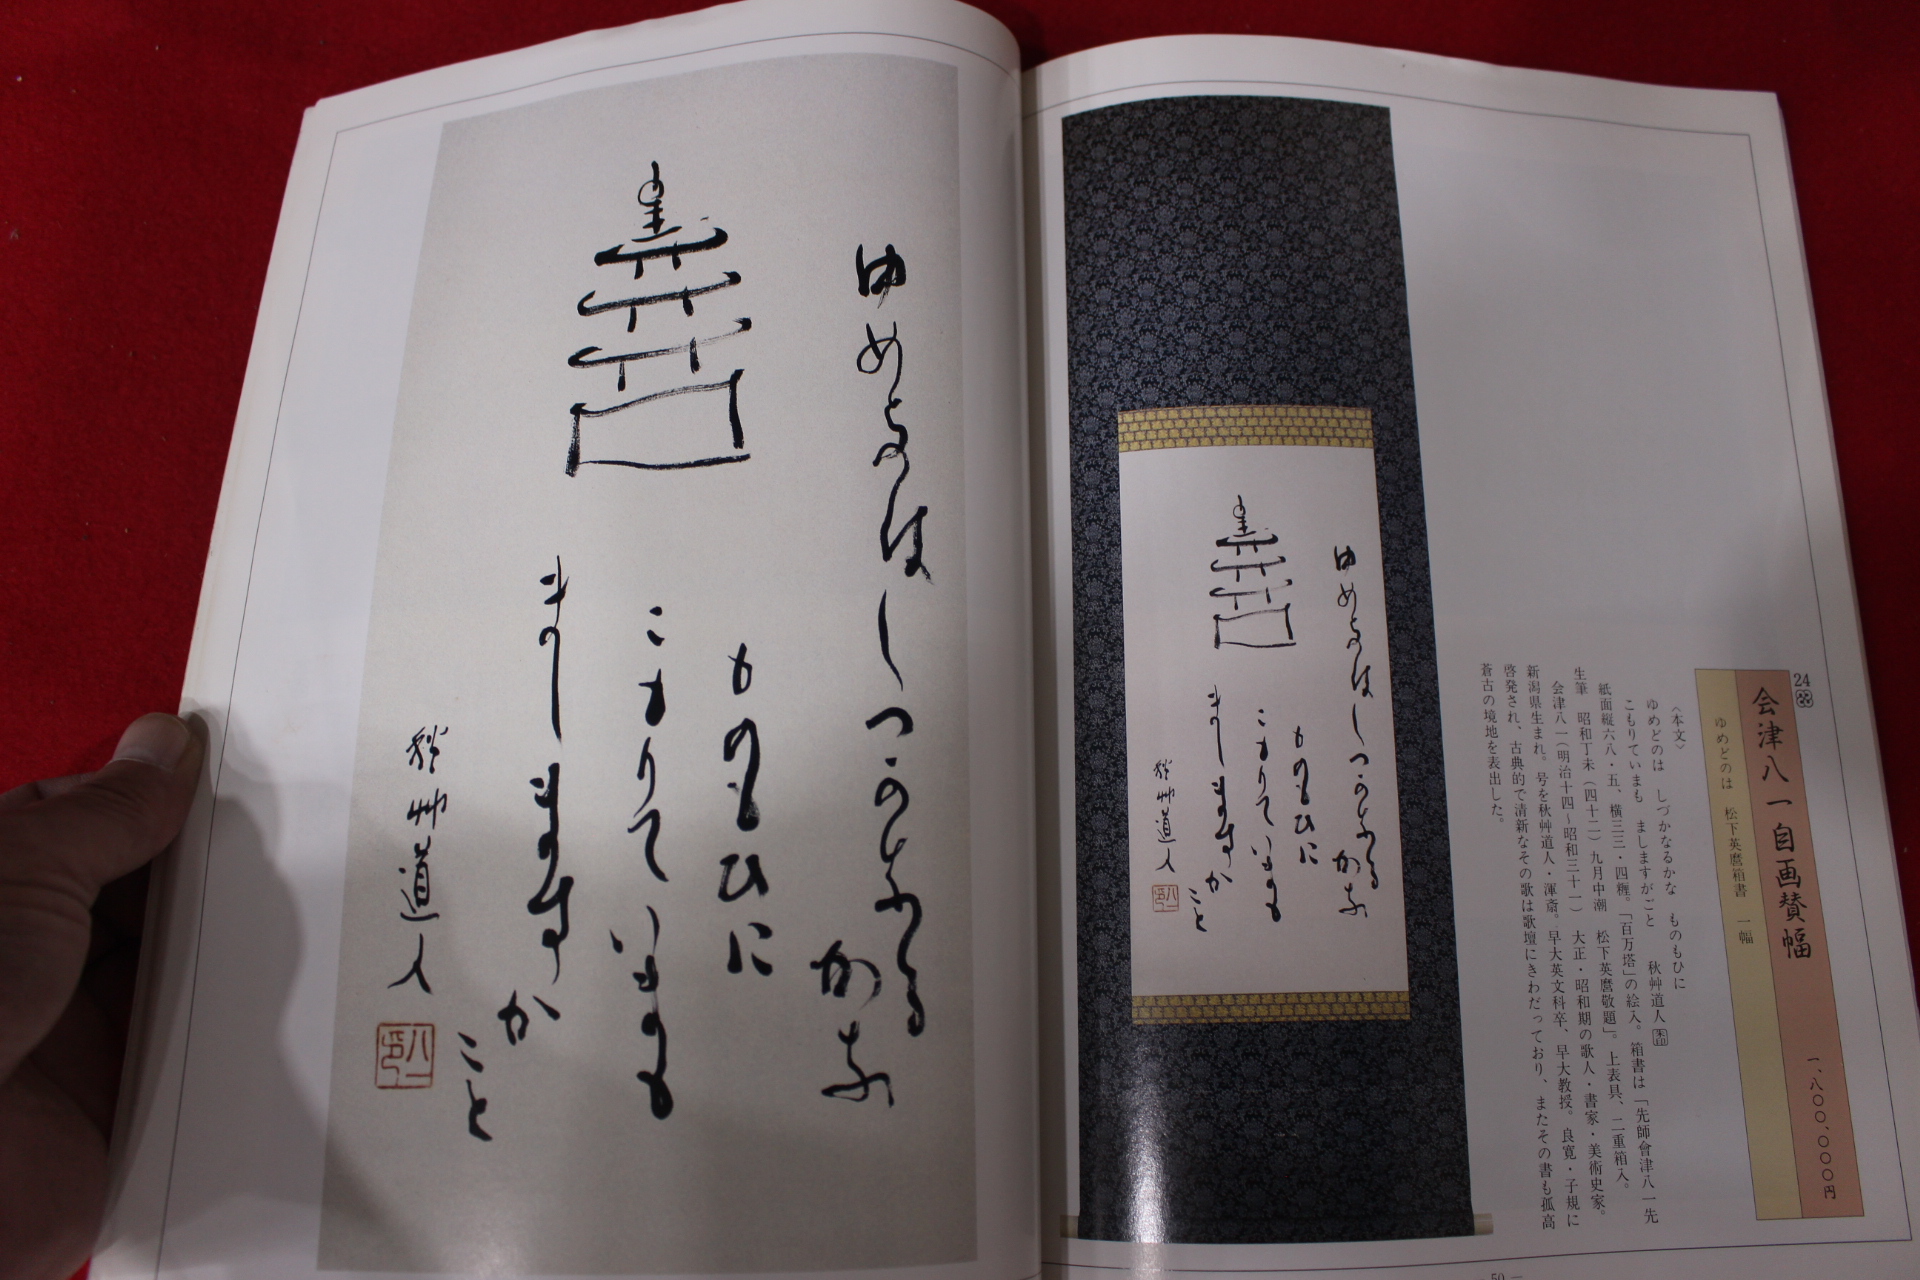 24
会津八一自画賛幅
一、八〇〇、〇〇〇円
ゆめどのは 松下英麿箱書 一幅
〈本文〉
ゆめどのは しづかなるかな ものもひに
こもりていまも ましますがごと 秋艸道人
紙面縦六八・五、横三三・四糎。「百万塔」の絵入。箱書は「先師會津八一先
生筆 昭和丁未（四十二）九月中潮 松下英麿敬題」。上表具、二重箱入。
会津八一（明治十四～昭和三十一） 大正・昭和期の歌人・書家・美術史家。
新潟県生まれ。号を秋艸道人・渾斎。早大英文科卒、早大教授。良寛・子規に
啓発され、古典的で清新なその歌は歌壇にきわだっており、またその書も孤高
蒼古の境地を表出した。
ゆめとのは
しつかなる
かな
ものもひに
こもりていまも
まし
ますか
こと
秋艸道人
ゆめとのは
しつかなる
かな
ものもひに
こもりていまも
まし
ますか
こと
秋艸道人
— 50 —